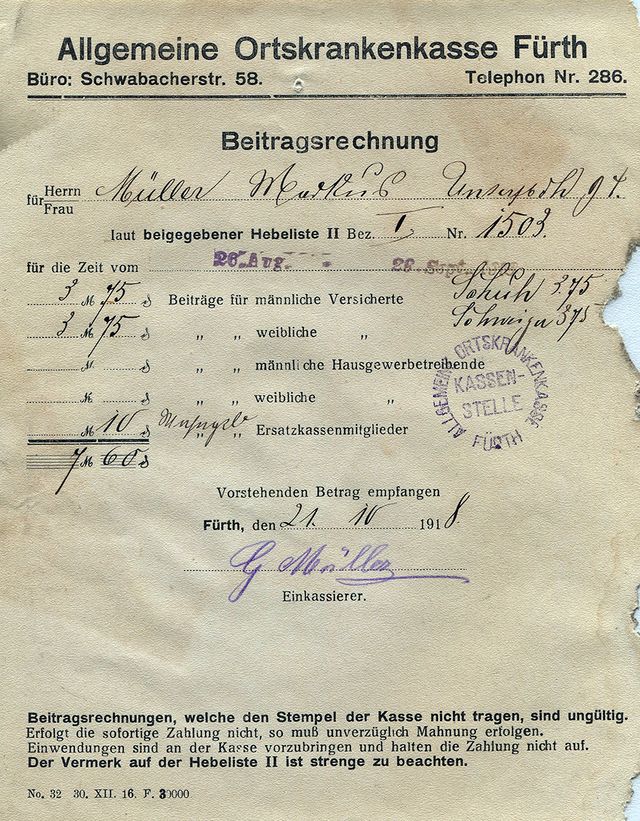 Allgemeine Ortskrankenkasse Fürth
Büro: Schwabacherstr. 58. Telephon Nr. 286.
Beitragsrechnung
für Herrn Frau Müller Markus 94.
laut beigegebener Hebeliste II Bez. I Nr. 1503.
für die Zeit vom 26. Aug. - 29. Sept.
3 M 75 ₰ Beiträge für männliche Versicherte Schuh 3.75
3 M 75 ₰ „ „ weibliche „ 375
M ₰ „ „ männliche Hausgewerbetreibende
M ₰ „ „ weibliche „
M 10 ₰ „ „ Ersatzkassenmitglieder
7 M 60 ₰
ALLGEMEINE ORTSKRANKENKASSE FÜRTH
KASSEN-
STELLE
Vorstehenden Betrag empfangen
Fürth, den 21. 10 1918.
G Müller
Einkassierer.
Beitragsrechnungen, welche den Stempel der Kasse nicht tragen, sind ungültig.
Erfolgt die sofortige Zahlung nicht, so muß unverzüglich Mahnung erfolgen.
Einwendungen sind an der Kasse vorzubringen und halten die Zahlung nicht auf.
Der Vermerk auf der Hebeliste II ist strenge zu beachten.
No. 32 30. XII. 16. F. 30000